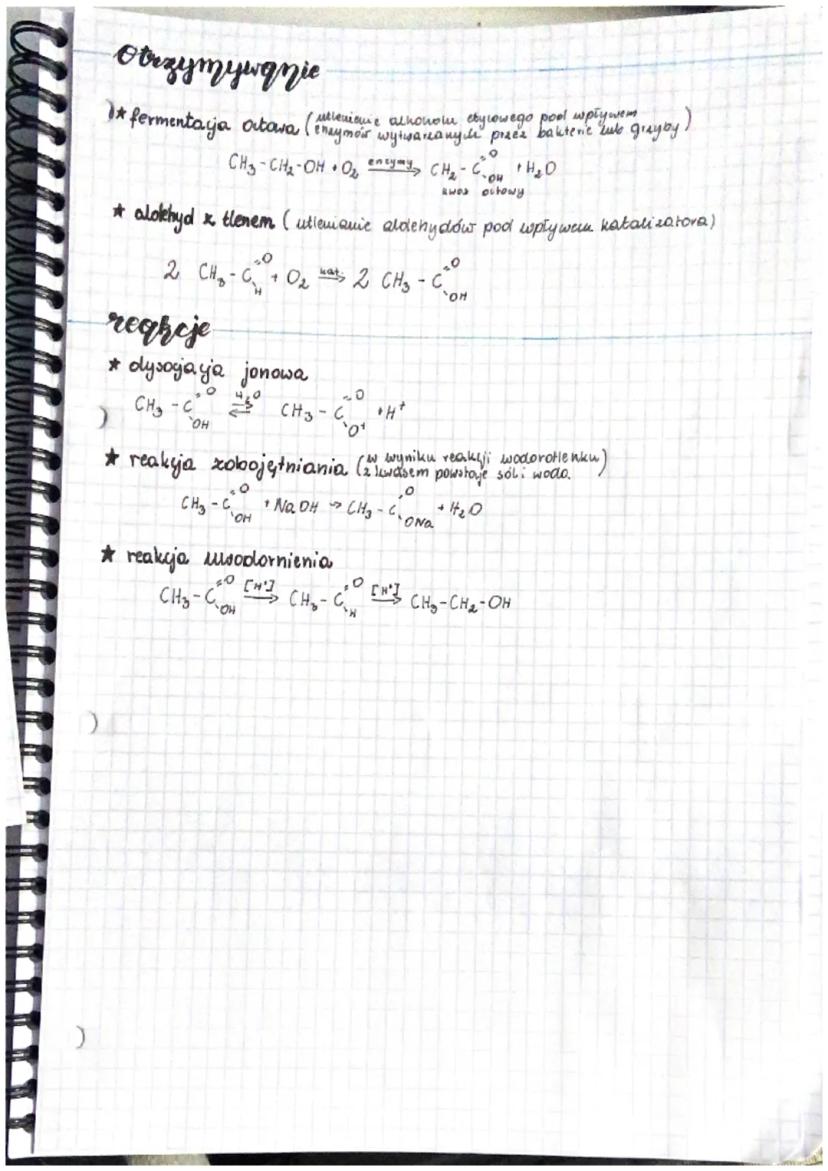 otrzymywanie
★ fermentacja octowa (utlenienie alkoholu etylowego pod wpływem
enzymów wytwarzanych przez bakterie lub grzyby)
CH₃-CH₂-OH + O₂ enzymy → CH₂-C=O -OH + H₂O
kwas octowy
★ aldehyd z tlenem (utlenianie aldehydów pod wpływem katalizatora)
2 CH₃-C=O -H + O₂ kat. → 2 CH₃-C=O -OH
reakcje
★ dysocjacja jonowa
CH₃-C=O -OH H₂O ⇌ CH₃-C=O -O⁺ + H⁺
★ reakcja zobojętniania (w wyniku reakcji wodorotlenku
z kwasem powstaje sól i woda.)
CH₃-C=O -OH + NaOH → CH₃-C=O -ONa + H₂O
★ reakcja uwodornienia
CH₃-C=O -OH [H⁺] → CH₃-C=O -H [H⁺] → CH₃-CH₂-OH